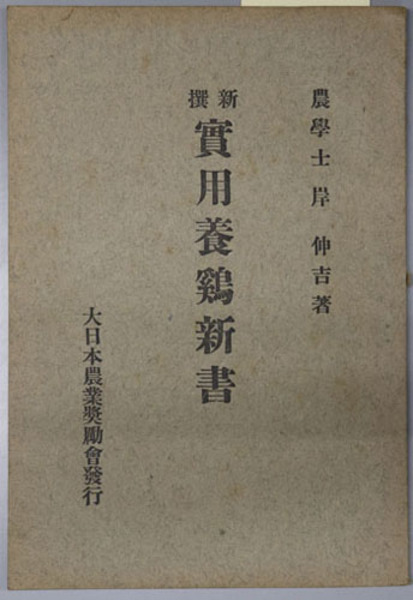 農學士岸伸吉著
新撰
實用養鷄新書
大日本農業奬勵會發行